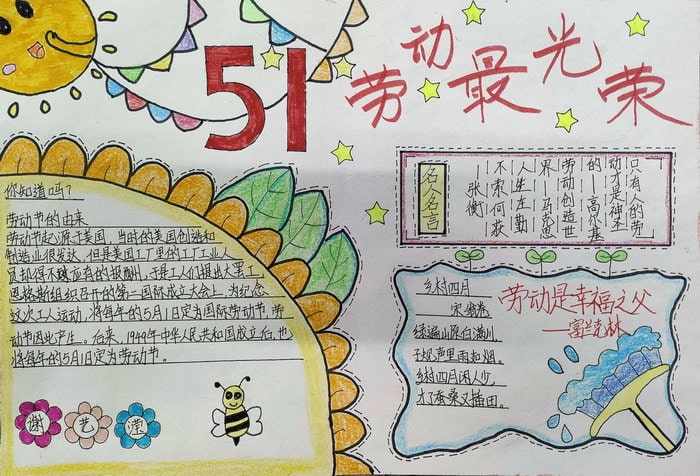 51
劳动最光荣
你知道吗?
劳动节的由来
劳动节起源于美国,当时的美国创造和
制造业很发达,但是美国工厂里的工厂工人
只却得不到应有的报酬,于是工人们提出大罢工,
恩格斯组织召开的第二国际成立大会上,为纪念
这次工人运动,将每年的5月1日定为国际劳动节,劳
动节因此产生。后来,1949年中华人民共和国成立后,也
将每年的5月1日定为劳动节。
谢艺滢
名人名言
只有人的劳
动才是神圣
的—高尔基
劳动创造世
界—马克思
人生在勤
不索何获
—张衡
乡村四月
宋 翁卷
绿遍山原白满川,
子规声里雨如烟。
乡村四月闲人少,
才了蚕桑又插田。
劳动是幸福之父
—富兰克林